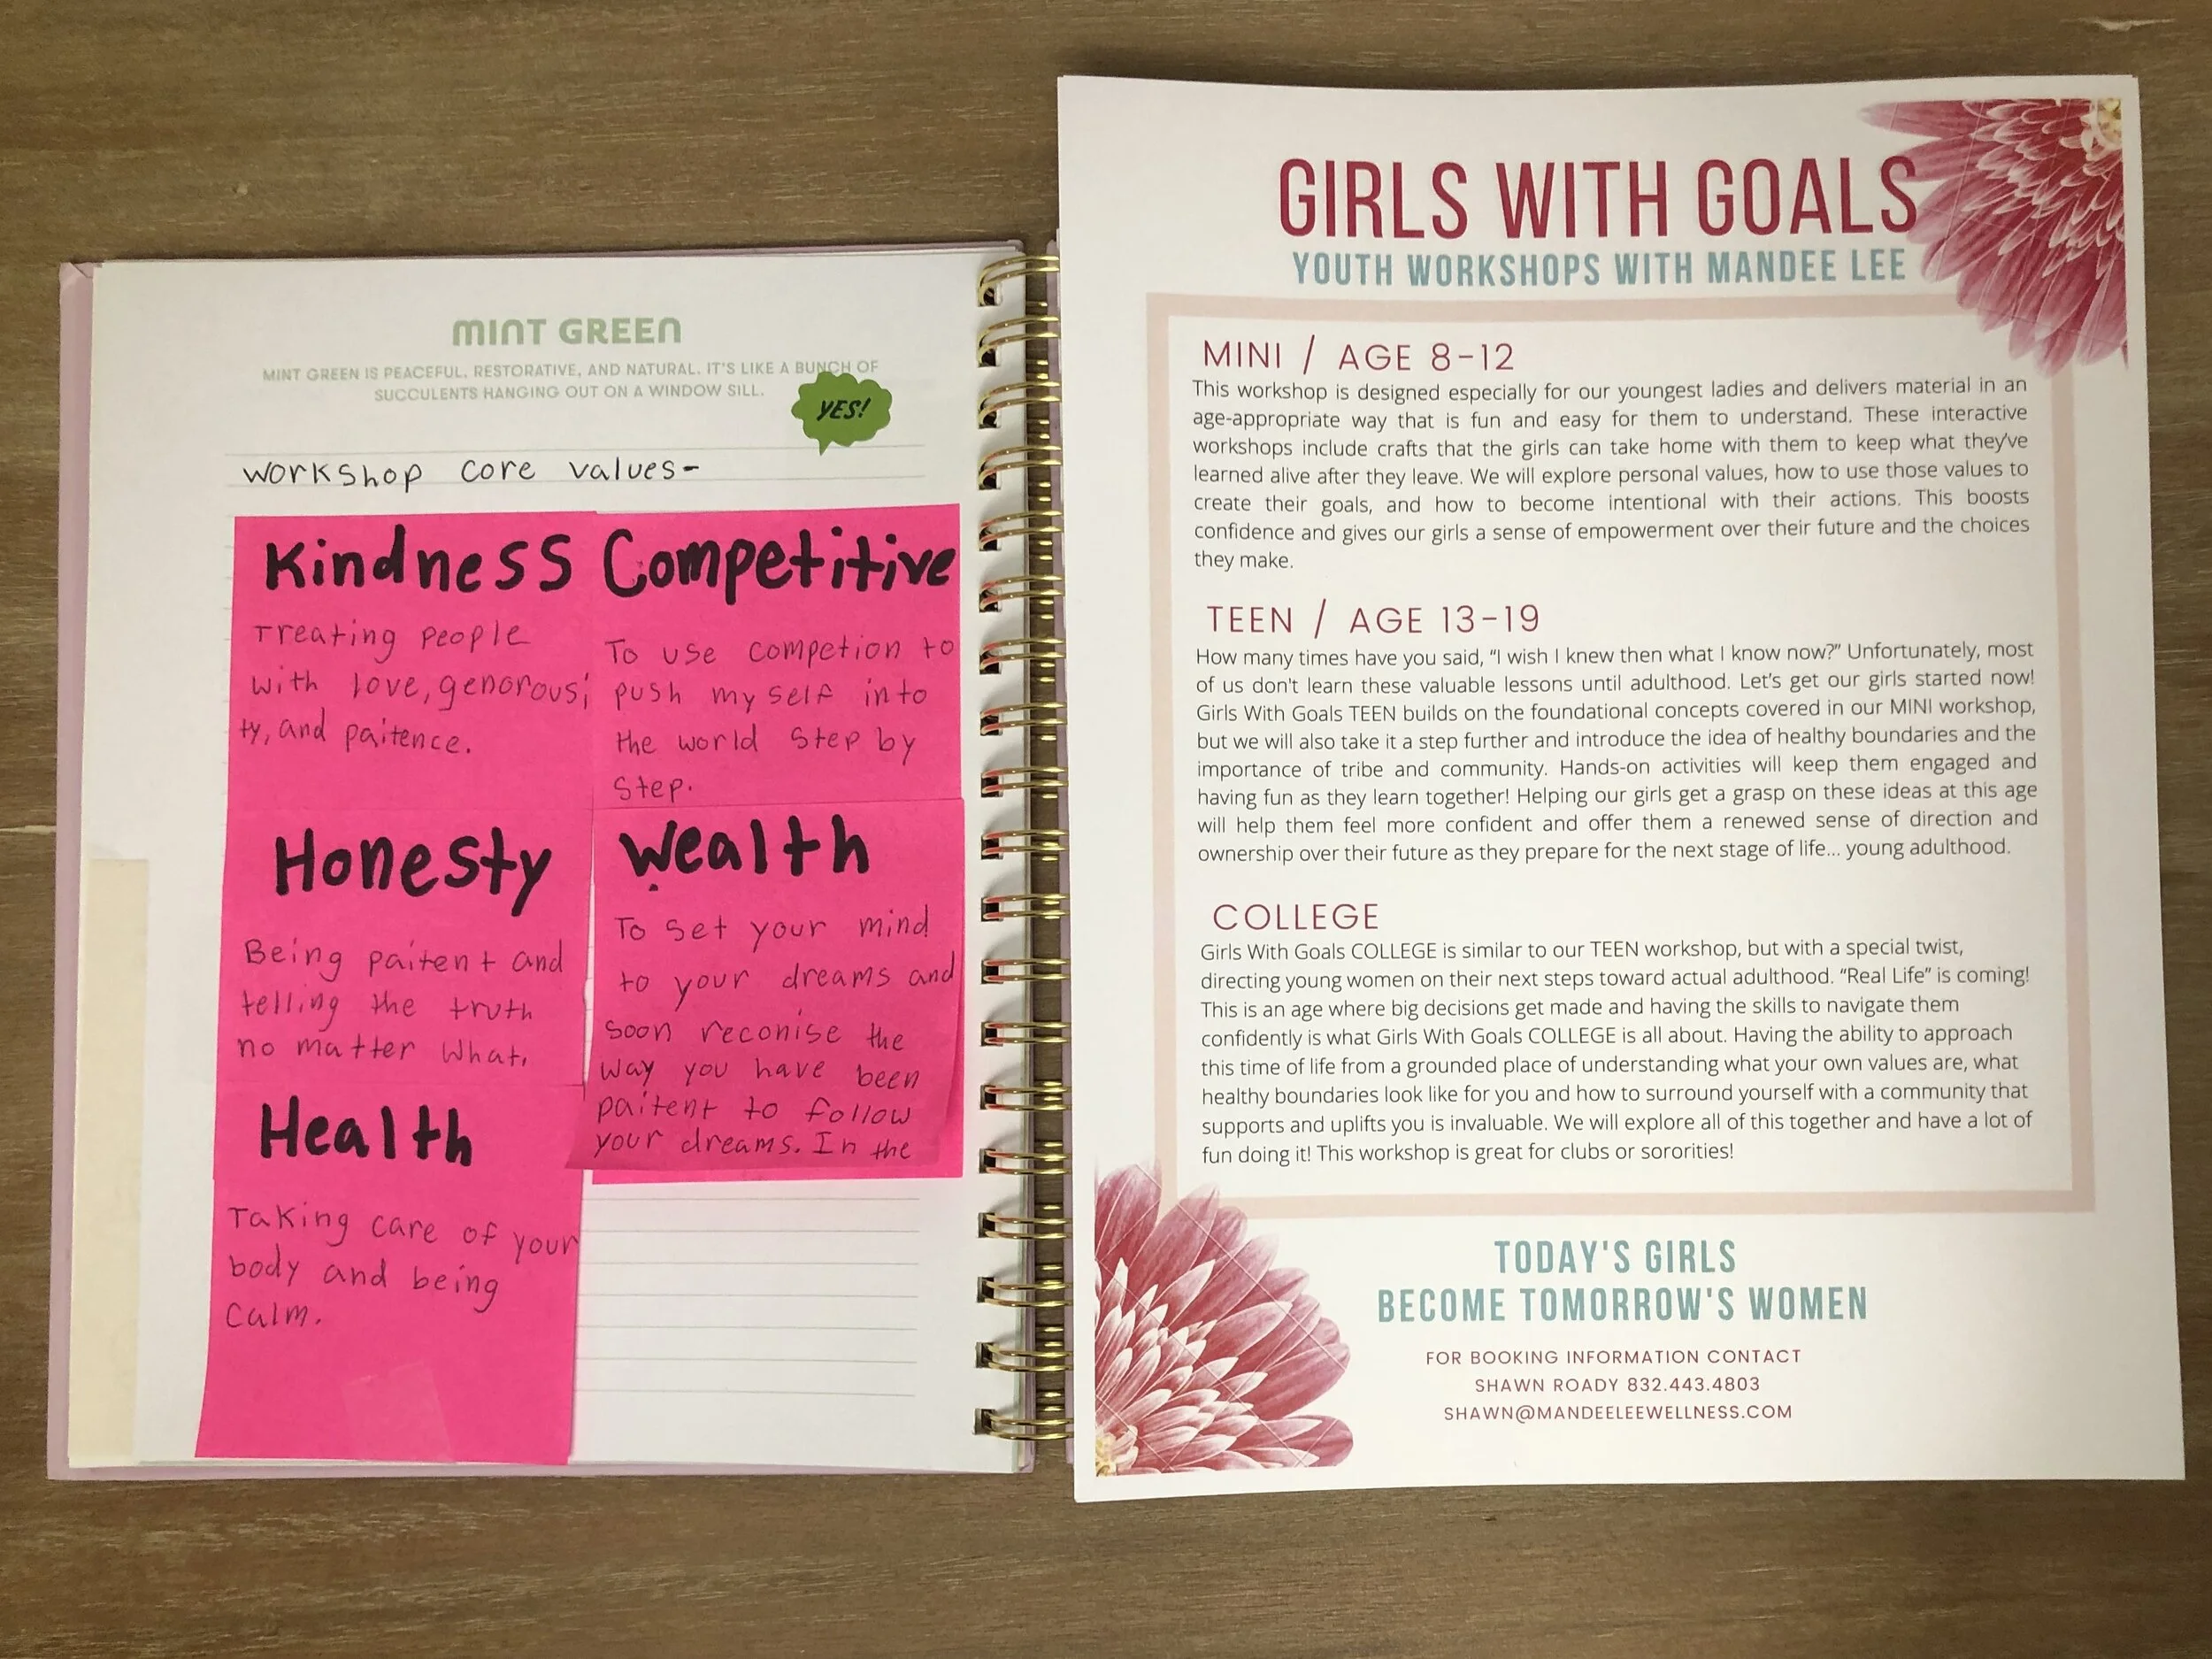 MINT GREEN
MINT GREEN IS PEACEFUL, RESTORATIVE, AND NATURAL. IT'S LIKE A BUNCH OF
SUCCULENTS HANGING OUT ON A WINDOW SILL.
YES!
workshop core values-
Kindness
Treating people
with love, genorousi
ty, and paitence.
Competitive
To use competion to
push my self into
the world step by
step.
Honesty
Being paitent and
telling the truth
no matter what.
Wealth
To set your mind
to your dreams and
soon reconise the
way you have been
paitent to follow
your dreams. In the
Health
Taking care of your
body and being
calm.
GIRLS WITH GOALS
YOUTH WORKSHOPS WITH MANDEE LEE
MINI / AGE 8-12
This workshop is designed especially for our youngest ladies and delivers material in an
age-appropriate way that is fun and easy for them to understand. These interactive
workshops include crafts that the girls can take home with them to keep what they've
learned alive after they leave. We will explore personal values, how to use those values to
create their goals, and how to become intentional with their actions. This boosts
confidence and gives our girls a sense of empowerment over their future and the choices
they make.
TEEN / AGE 13-19
How many times have you said, “I wish I knew then what I know now?” Unfortunately, most
of us don't learn these valuable lessons until adulthood. Let's get our girls started now!
Girls With Goals TEEN builds on the foundational concepts covered in our MINI workshop,
but we will also take it a step further and introduce the idea of healthy boundaries and the
importance of tribe and community. Hands-on activities will keep them engaged and
having fun as they learn together! Helping our girls get a grasp on these ideas at this age
will help them feel more confident and offer them a renewed sense of direction and
ownership over their future as they prepare for the next stage of life... young adulthood.
COLLEGE
Girls With Goals COLLEGE is similar to our TEEN workshop, but with a special twist,
directing young women on their next steps toward actual adulthood. “Real Life” is coming!
This is an age where big decisions get made and having the skills to navigate them
confidently is what Girls With Goals COLLEGE is all about. Having the ability to approach
this time of life from a grounded place of understanding what your own values are, what
healthy boundaries look like for you and how to surround yourself with a community that
supports and uplifts you is invaluable. We will explore all of this together and have a lot of
fun doing it! This workshop is great for clubs or sororities!
TODAY'S GIRLS
BECOME TOMORROW'S WOMEN
FOR BOOKING INFORMATION CONTACT
SHAWN ROADY 832.443.4803
SHAWN@MANDEELEEWELLNESS.COM